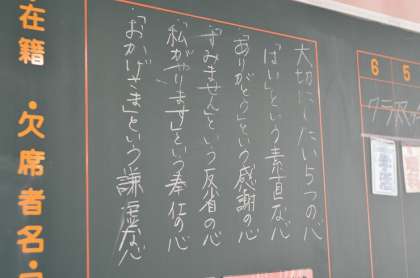 大切にしたい5つの心
「はい」という素直な心
「ありがとう」という感謝の心
「すみません」という反省の心
「私がやります」という奉仕の心
「おかげさま」という謙虚な心
6
5
在籍・欠席者名・